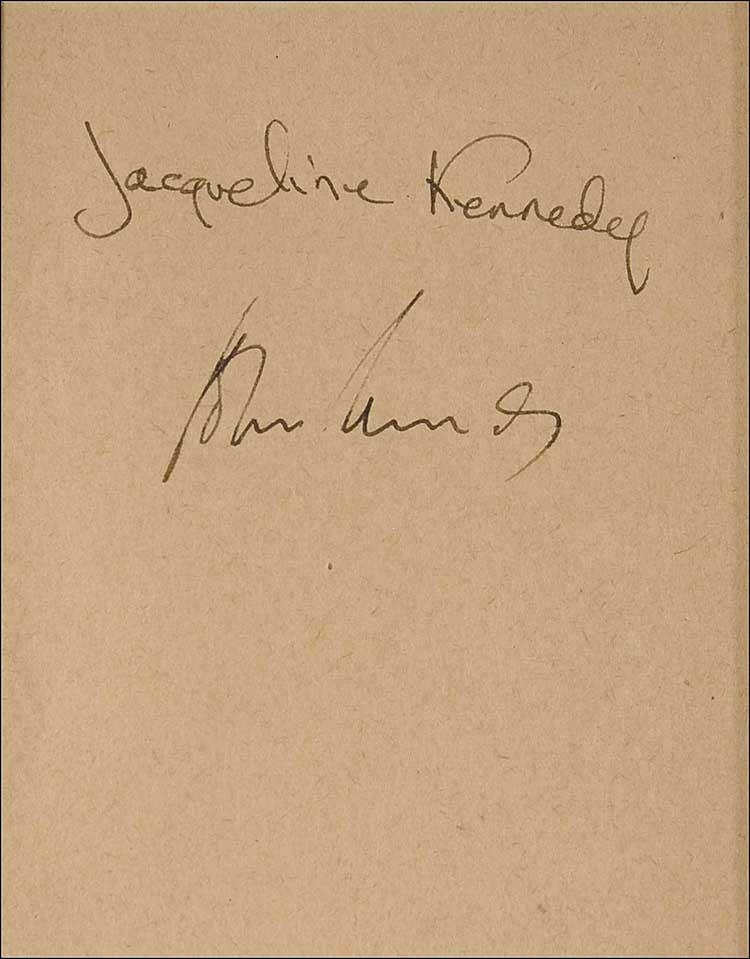 Jacqueline Kennedy
John Kennedy